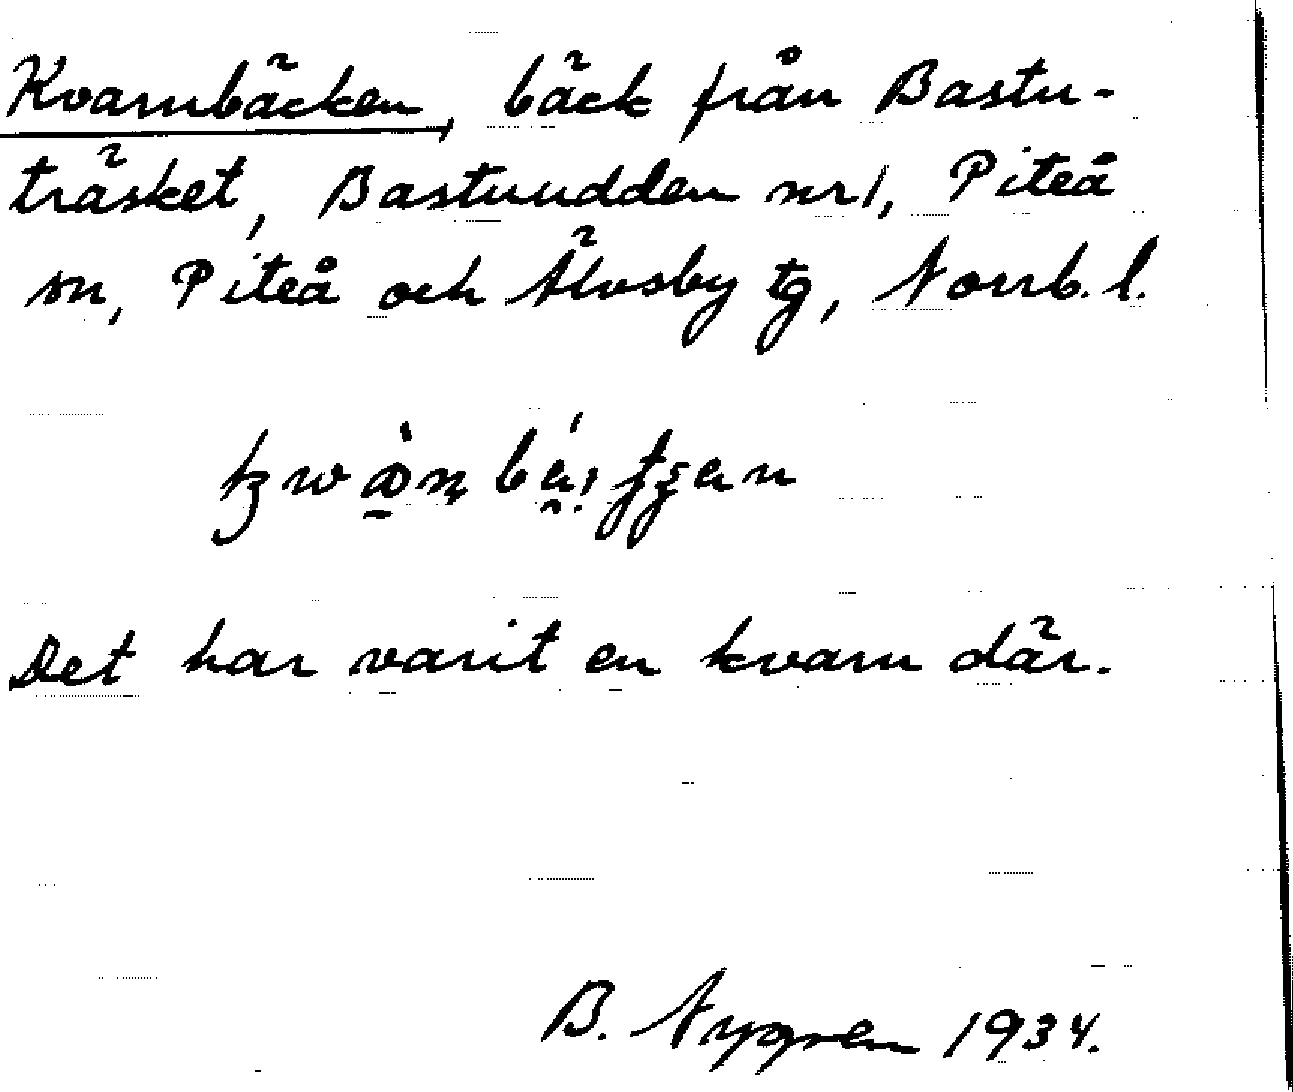 Kvarnbäcken, bäck från Bastu-
träsket, Bastuudden nr 1, Piteå
sn, Piteå och Älvsby tg, Norrb. l.
Det har varit en kvarn där.
B. Nygren 1934.